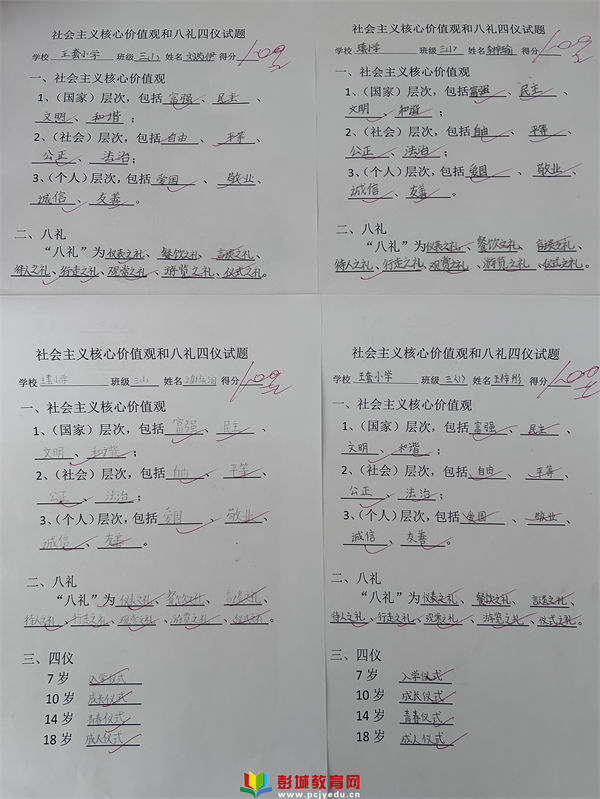 社会主义核心价值观和八礼四仪试题
学校 王套小学 班级 三(1) 姓名 得分 100
一、社会主义核心价值观
1、（国家）层次，包括 富强 、 民主 、
文明 、 和谐 ；
2、（社会）层次，包括 自由 、 平等 、
公正 、 法治 ；
3、（个人）层次，包括 爱国 、 敬业 、
诚信 、 友善 。
二、八礼
“八礼”为 仪表之礼 、 餐饮之礼 、 言谈之礼 、
待人之礼 、 行走之礼 、 观赏之礼 、 游览之礼 、 仪式之礼 。
社会主义核心价值观和八礼四仪试题
学校 小学 班级 三(1) 姓名 得分 100
一、社会主义核心价值观
1、（国家）层次，包括 富强 、 民主 、
文明 、 和谐 ；
2、（社会）层次，包括 自由 、 平等 、
公正 、 法治 ；
3、（个人）层次，包括 爱国 、 敬业 、
诚信 、 友善 。
二、八礼
“八礼”为 仪表之礼 、 餐饮之礼 、 言谈之礼 、
待人之礼 、 行走之礼 、 观赏之礼 、 游览之礼 、 仪式之礼 。
社会主义核心价值观和八礼四仪试题
学校 王套小学 班级 三(1) 姓名 得分 100
一、社会主义核心价值观
1、（国家）层次，包括 富强 、 民主 、
文明 、 和谐 ；
2、（社会）层次，包括 自由 、 平等 、
公正 、 法治 ；
3、（个人）层次，包括 爱国 、 敬业 、
诚信 、 友善 。
二、八礼
“八礼”为 仪表之礼 、 餐饮之礼 、 言谈之礼 、
待人之礼 、 行走之礼 、 观赏之礼 、 游览之礼 、 仪式之礼 。
三、四仪
7 岁 入学仪式
10 岁 成长仪式
14 岁 青春仪式
18 岁 成人仪式
社会主义核心价值观和八礼四仪试题
学校 王套小学 班级 三(1) 姓名 王梓彤 得分 100
一、社会主义核心价值观
1、（国家）层次，包括 富强 、 民主 、
文明 、 和谐 ；
2、（社会）层次，包括 自由 、 平等 、
公正 、 法治 ；
3、（个人）层次，包括 爱国 、 敬业 、
诚信 、 友善 。
二、八礼
“八礼”为 仪表之礼 、 餐饮之礼 、 言谈之礼 、
待人之礼 、 行走之礼 、 观赏之礼 、 游览之礼 、 仪式之礼 。
三、四仪
7 岁 入学仪式
10 岁 成长仪式
14 岁 青春仪式
18 岁 成人仪式
彭城教育网
www.pcjyedu.cn